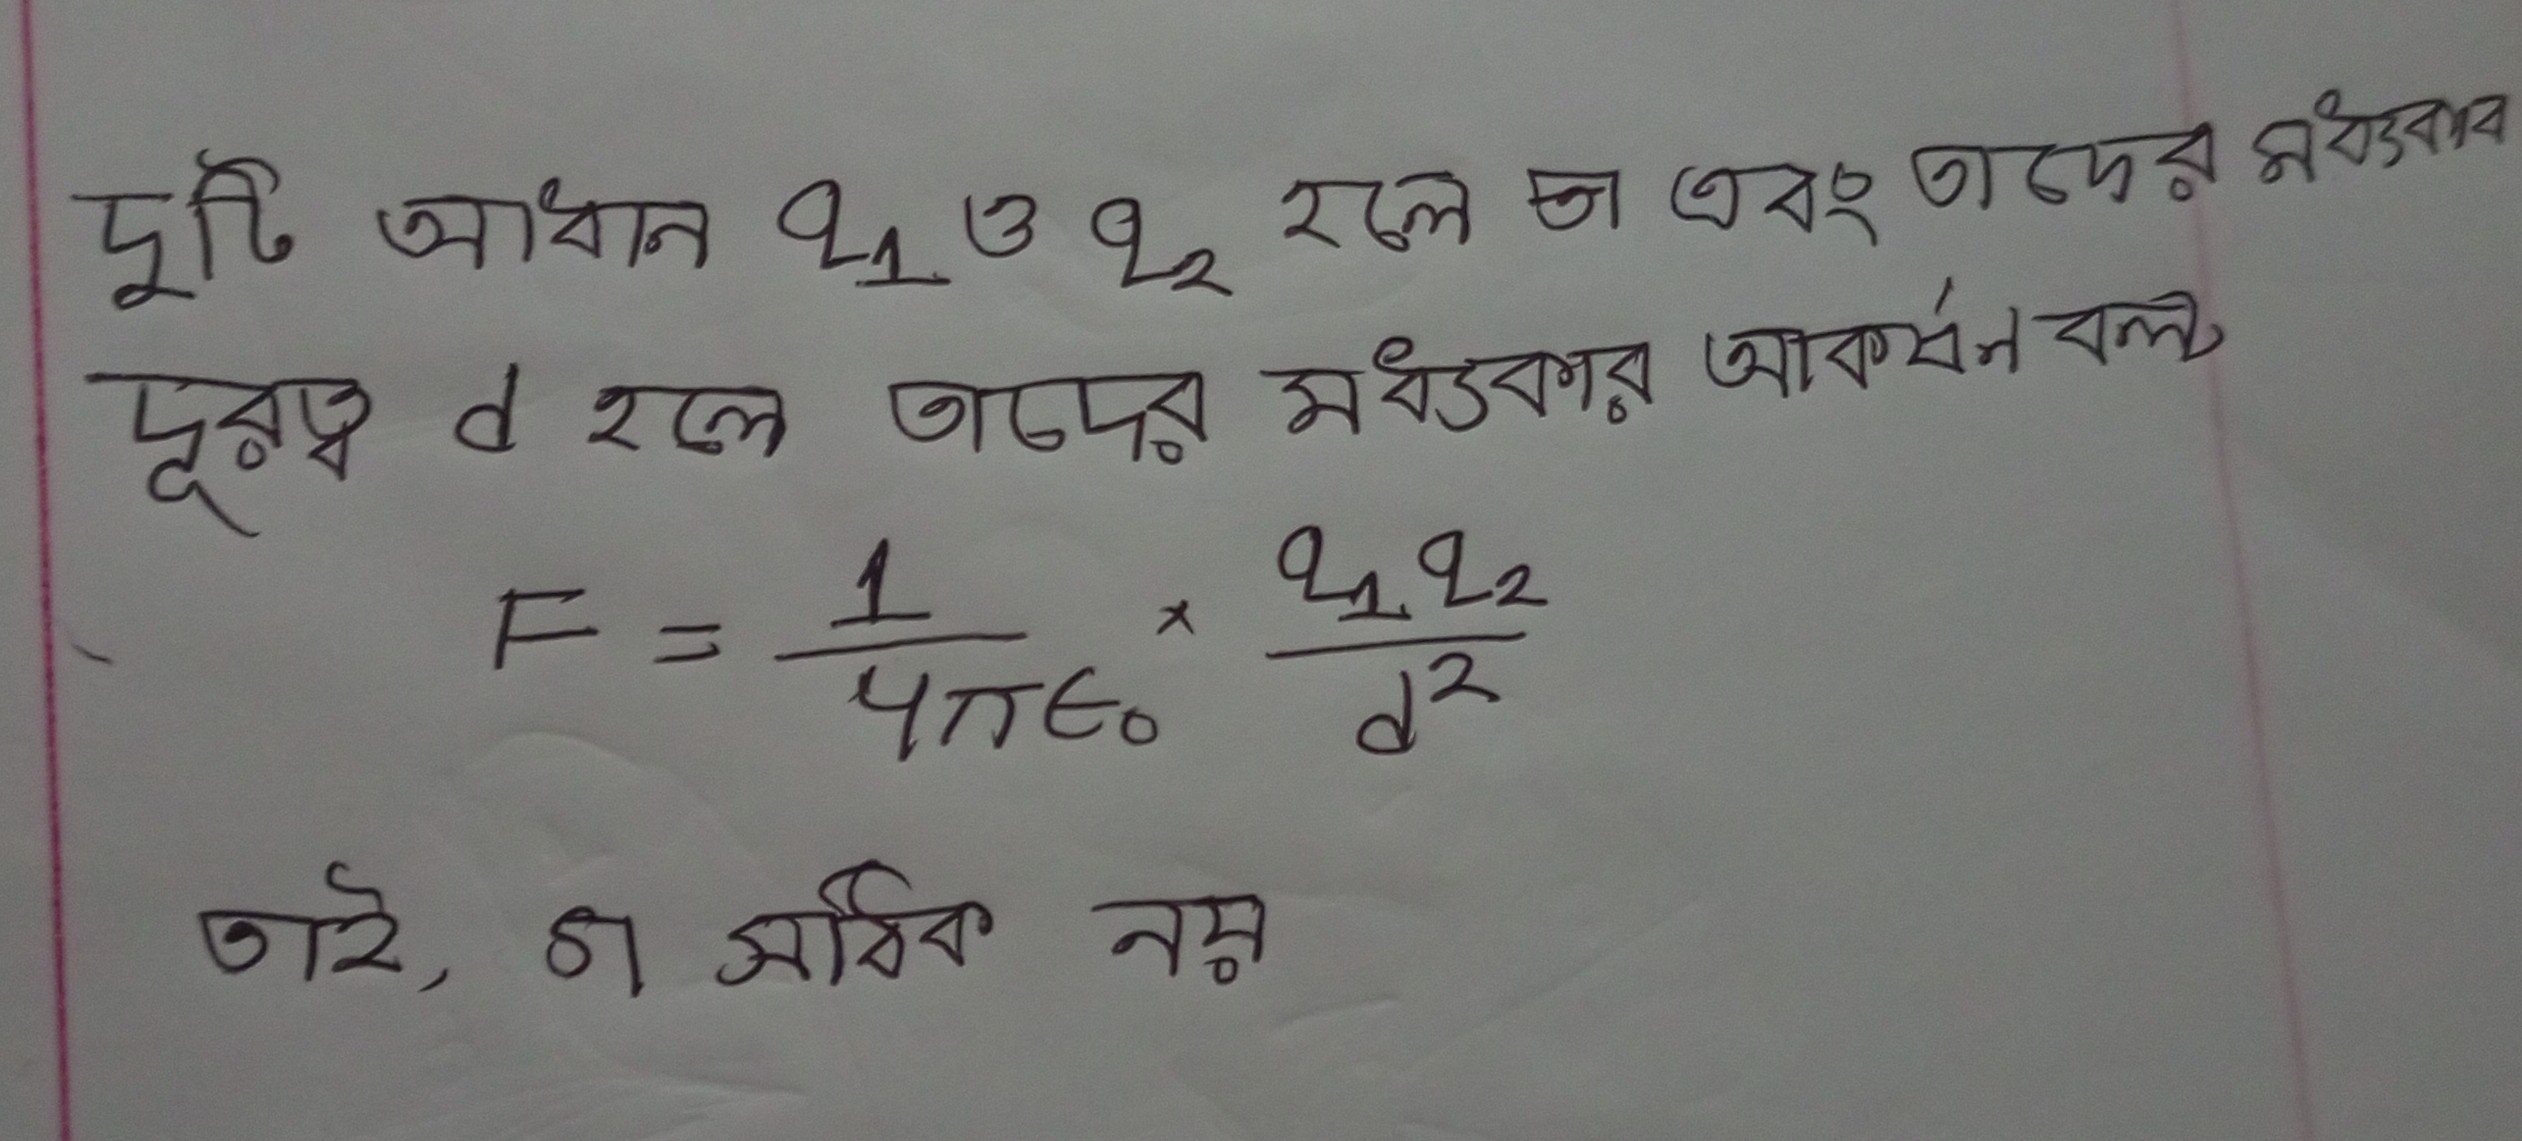 দুটি আধান q₁ ও q₂ হলে তা এবং তাদের মধ্যকার
দূরত্ব d হলে তাদের মধ্যকার আকর্ষন বল
F = 1/4πϵ₀ × q₁q₂/d²
তাই, তা সঠিক নয়